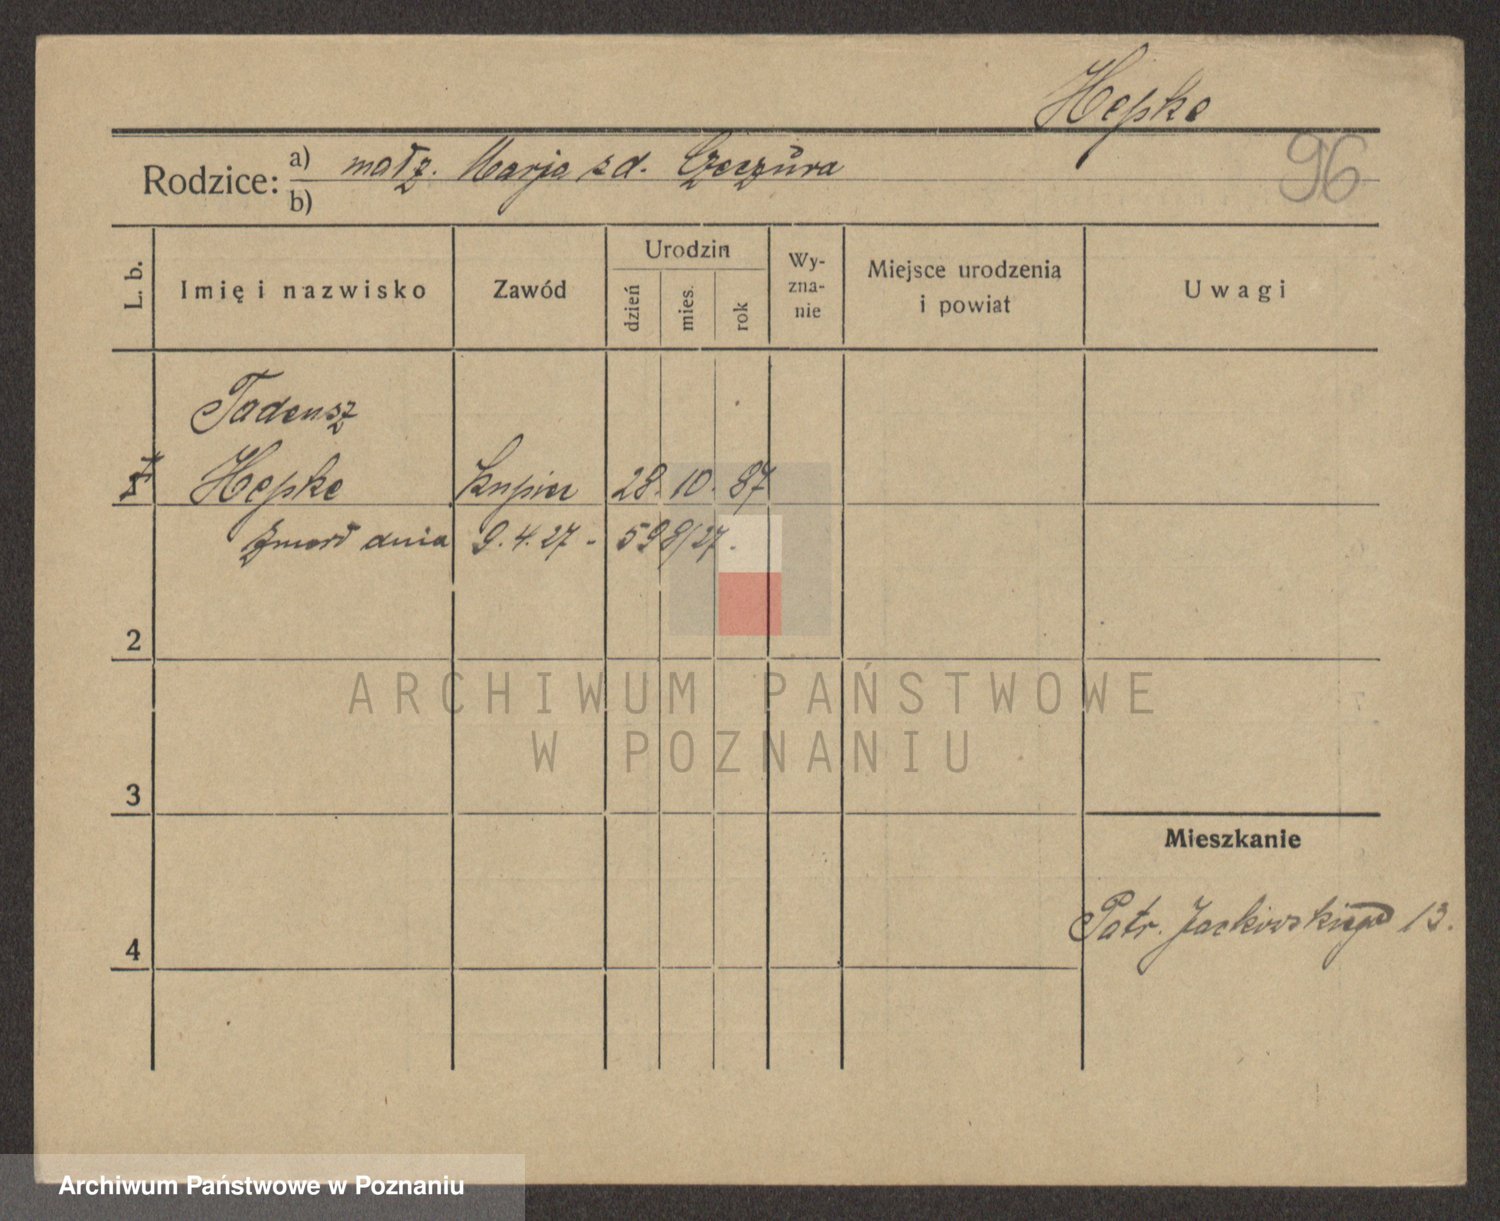 Hepke
96
Rodzice: a) małż. Marja zd. Czeczura
b)
L. b.
Imię i nazwisko
Zawód
Urodzin
dzień
mies.
rok
Wy-
zna-
nie
Miejsce urodzenia
i powiat
Uwagi
Tadeusz
Hepke kupiec 28. 10. 87
Zmarł dnia 9.4.27 - 598/27.
2
3
4
Mieszkanie
Patr. Jackowskiego 13.
ARCHIWUM PAŃSTWOWE
W POZNANIU
Archiwum Państwowe w Poznaniu